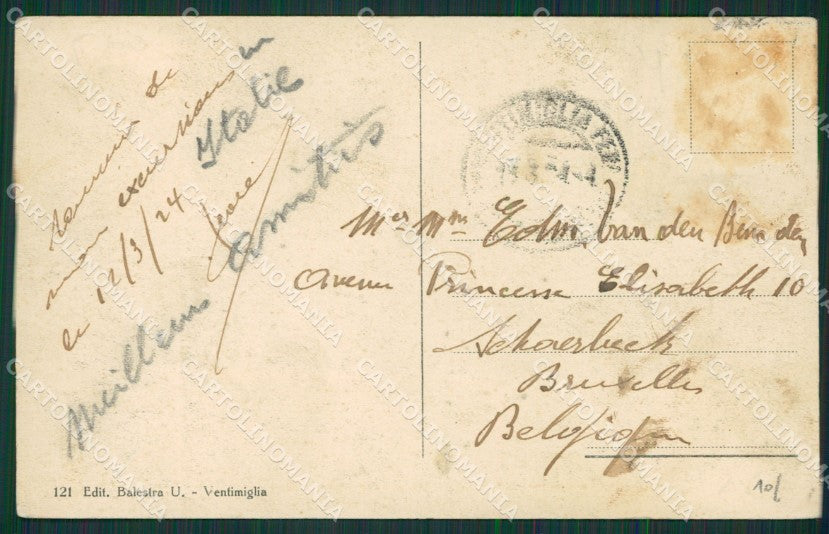 Souvenir de
mon excursion en
Italie
le 12/3/24
Meilleurs amitiés
VENTIMIGLIA
Mr Mme Edm. Van den
Avenue Princesse Elisabeth 10
Schaerbeek
Bruxelles
Belgique
121 Edit. Balestra U. - Ventimiglia
10/
CARTOLINOMANIA